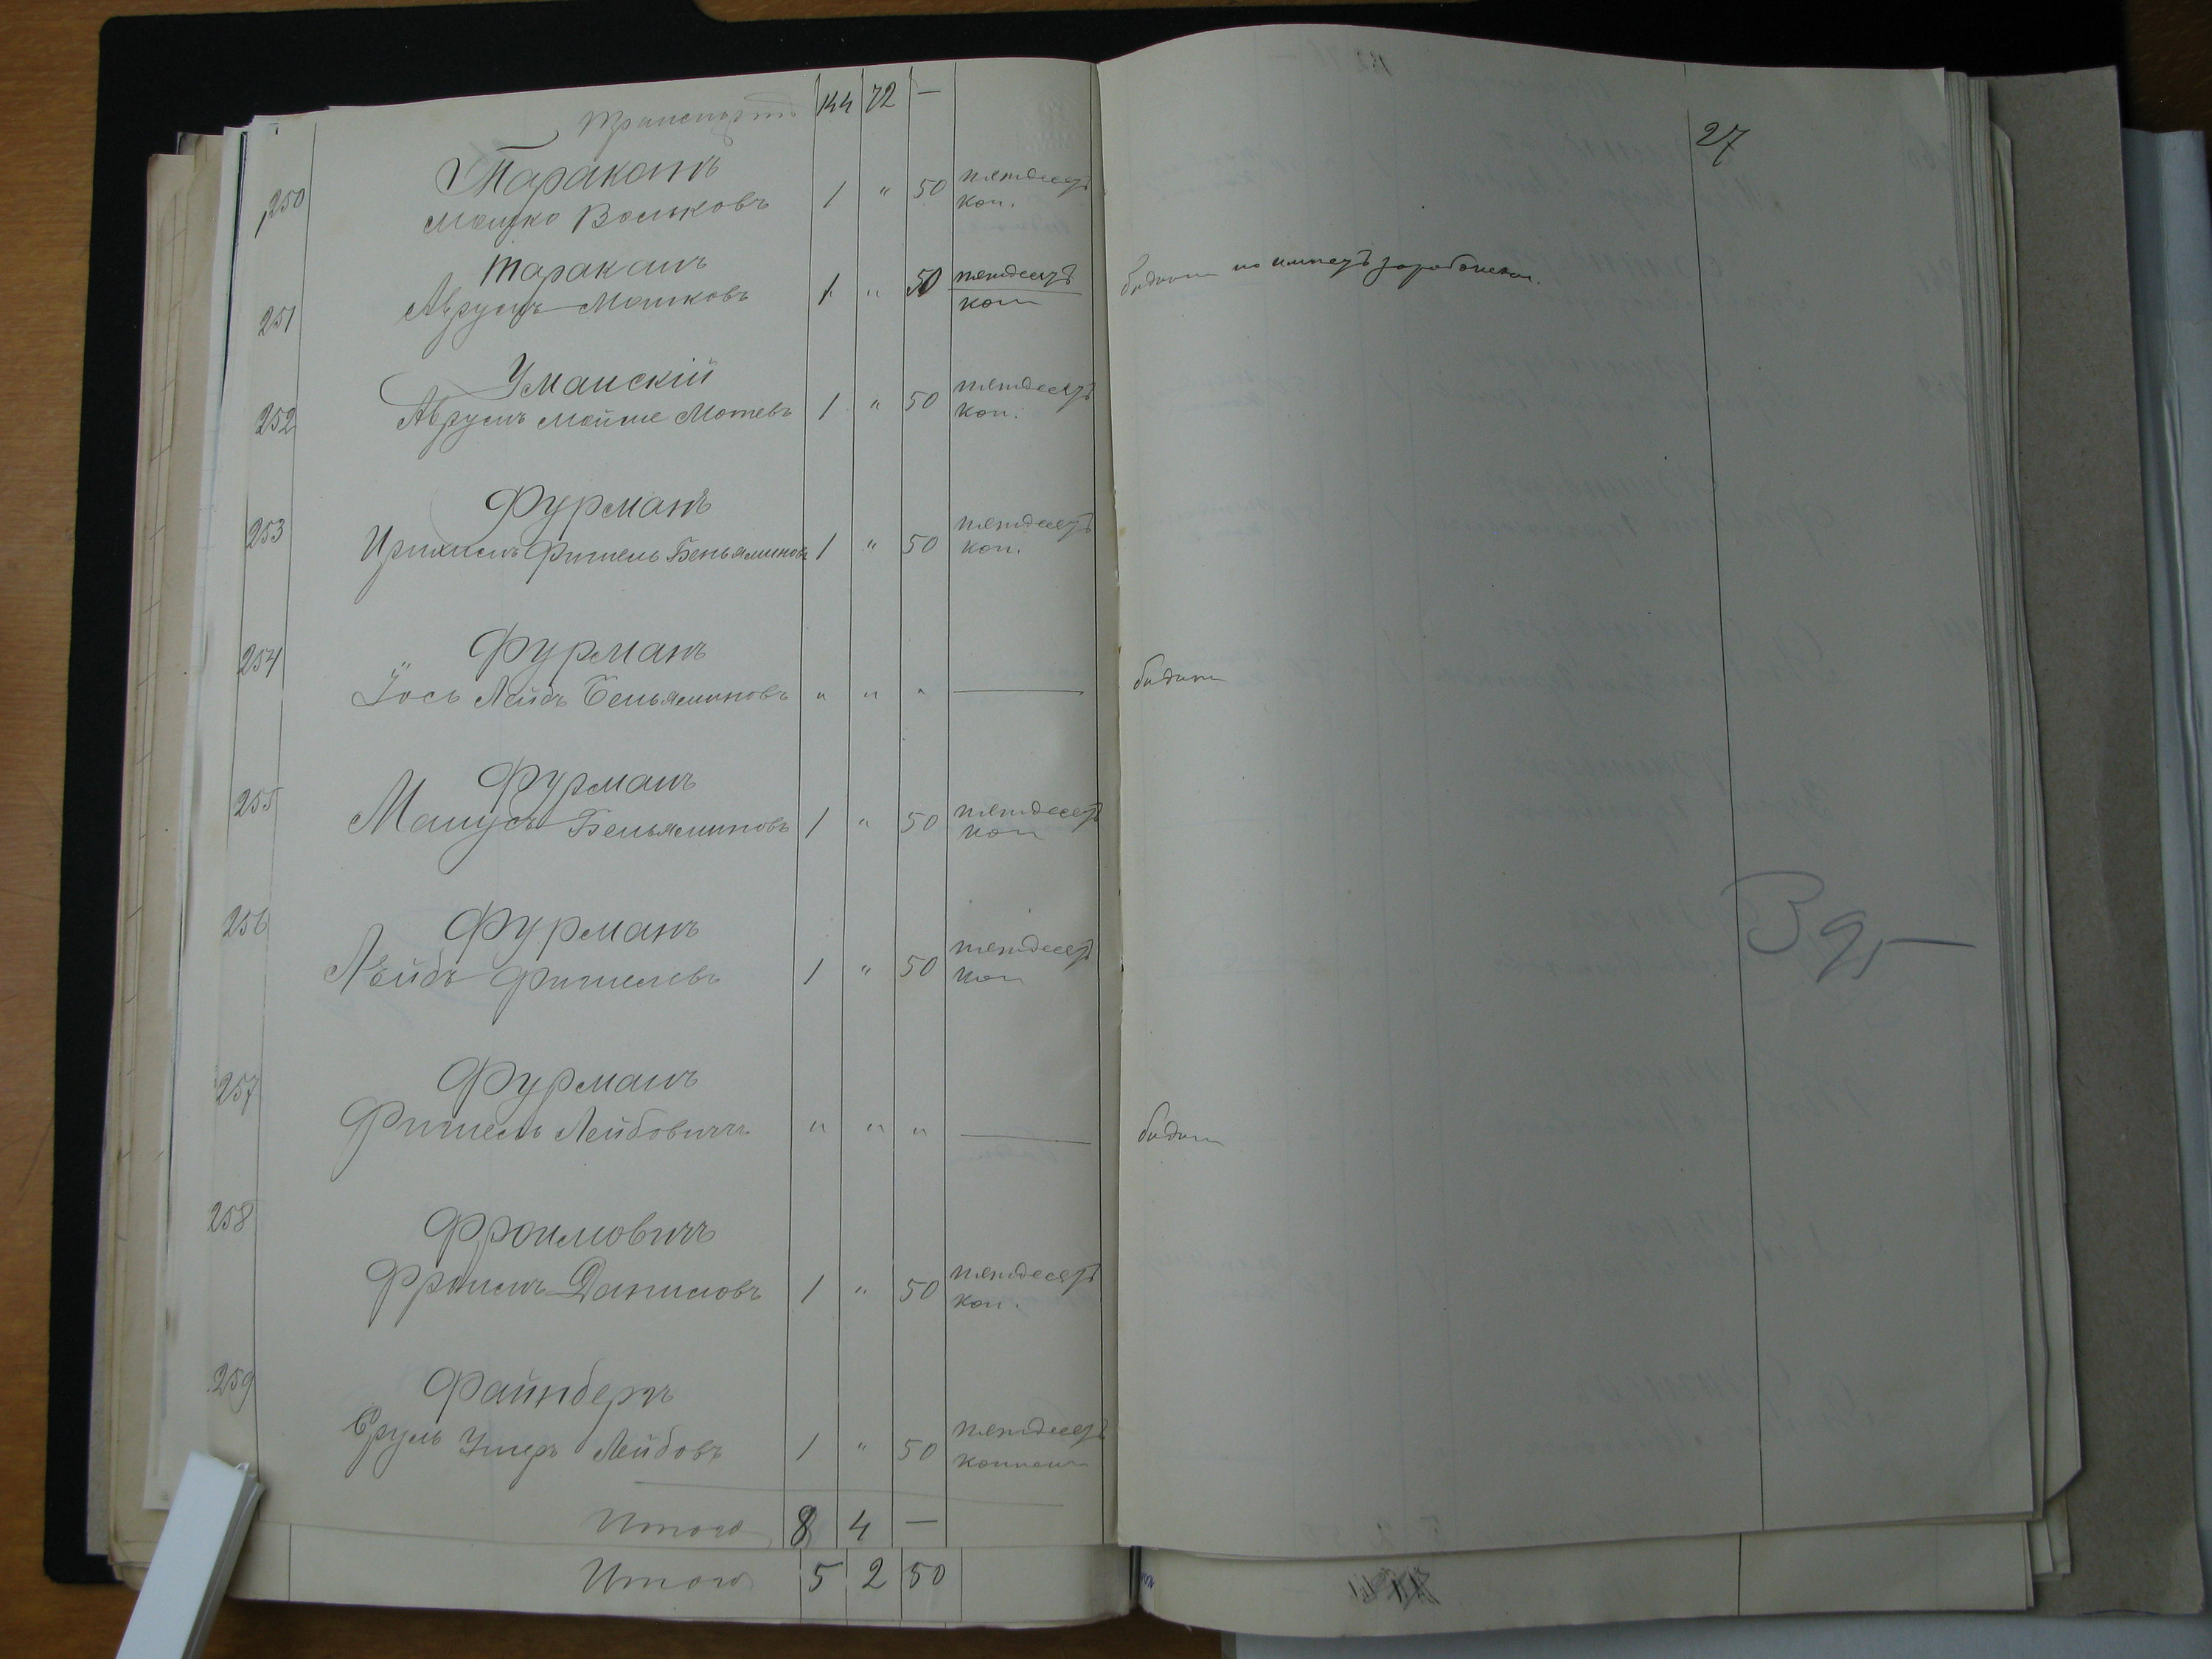 Транспортъ 144 72 —
27
250 Тараканъ
Мошко Вольковъ 1 " 50 пятдесятъ коп.
251 Тараканъ
Аврумъ Мошковъ 1 " 50 пятдесятъ коп
бѣдный не имѣетъ
252 Уманскій
Аврумъ Мойше Мотевъ 1 " 50 пятдесятъ коп.
253 Фурманъ
Фишель Беньяминовъ 1 " 50 пятдесятъ коп.
254 Фурманъ
Іось Лейбъ Беньяминовъ " " " —
бѣдный
255 Фурманъ
Манусъ Беньяминовъ 1 " 50 пятдесятъ коп
256 Фурманъ
Лейбъ Фишелевъ 1 " 50 пятдесятъ коп
395
257 Фурманъ
Фишель Лейбовичъ " " " —
бѣдный
258 Фроимовичъ
Фроимъ Даниловъ 1 " 50 пятдесятъ коп.
259 Файнбергъ
Сруль Ушеръ Лейбовъ 1 " 50 пятдесятъ
Итого 8 4 —
Итого 5 2 50